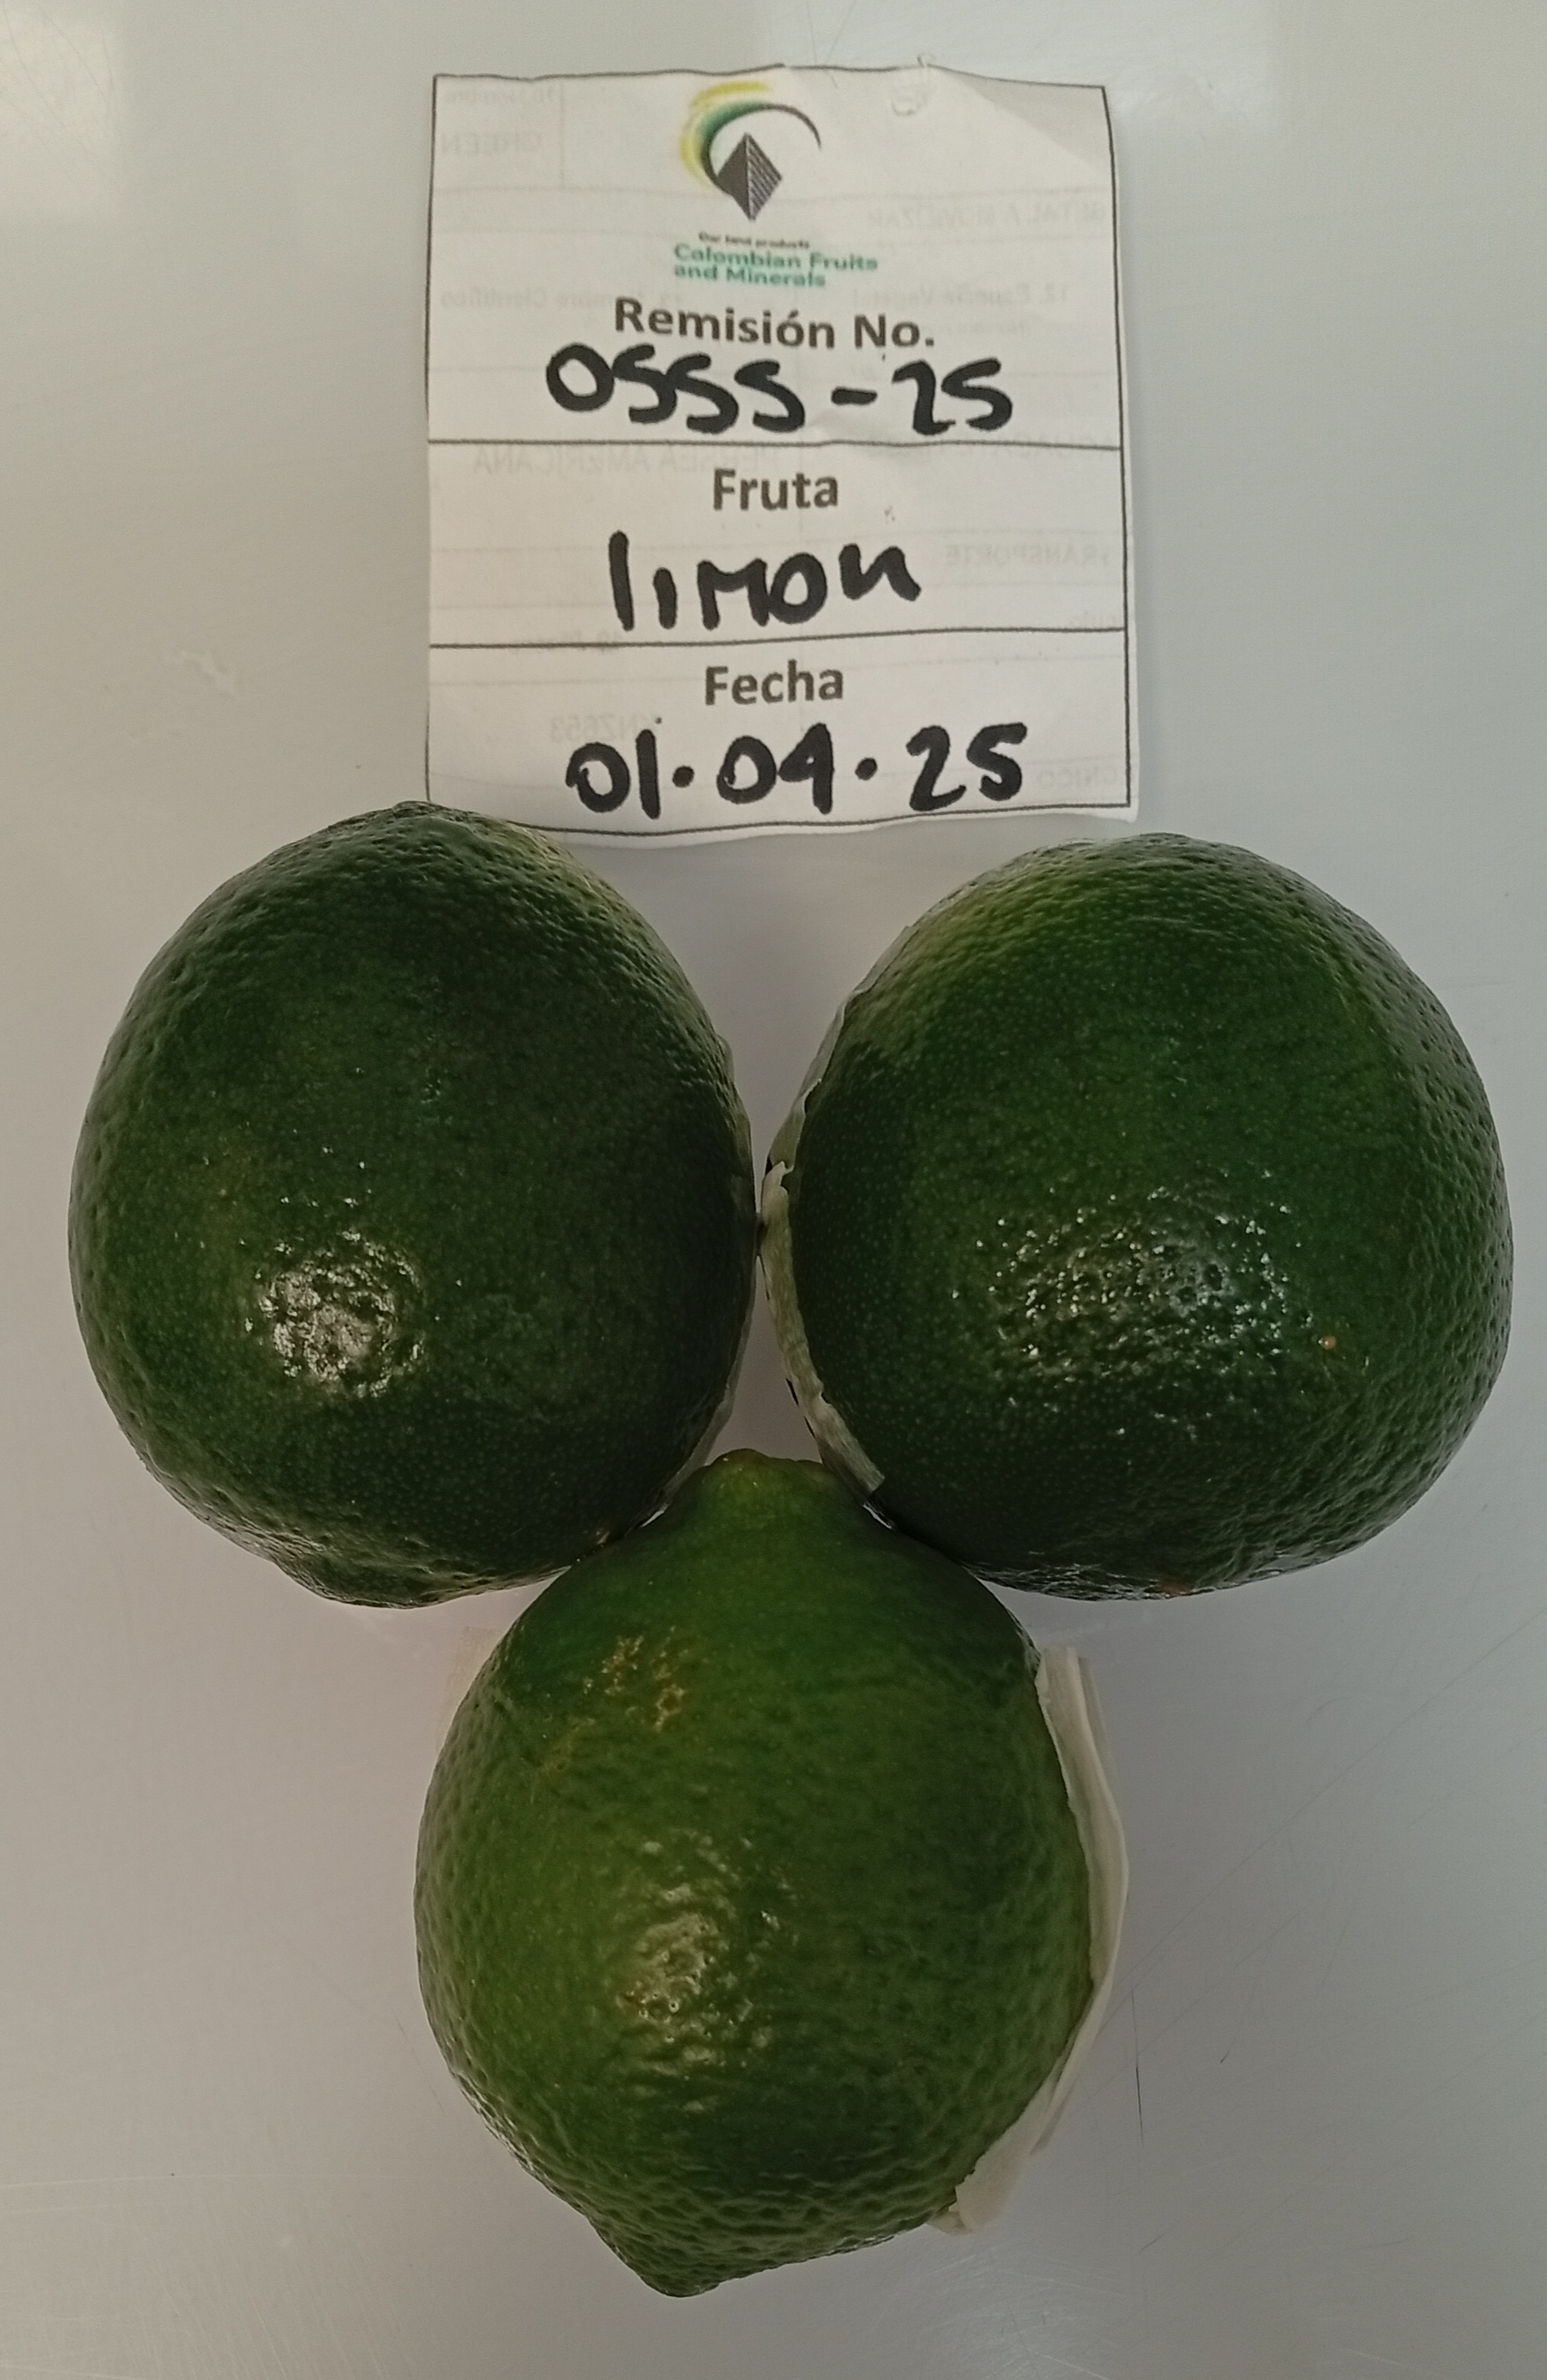 Our land products
Colombian Fruits
and Minerals
Remisión No.
0555-25
Fruta
limon
Fecha
01.04.25